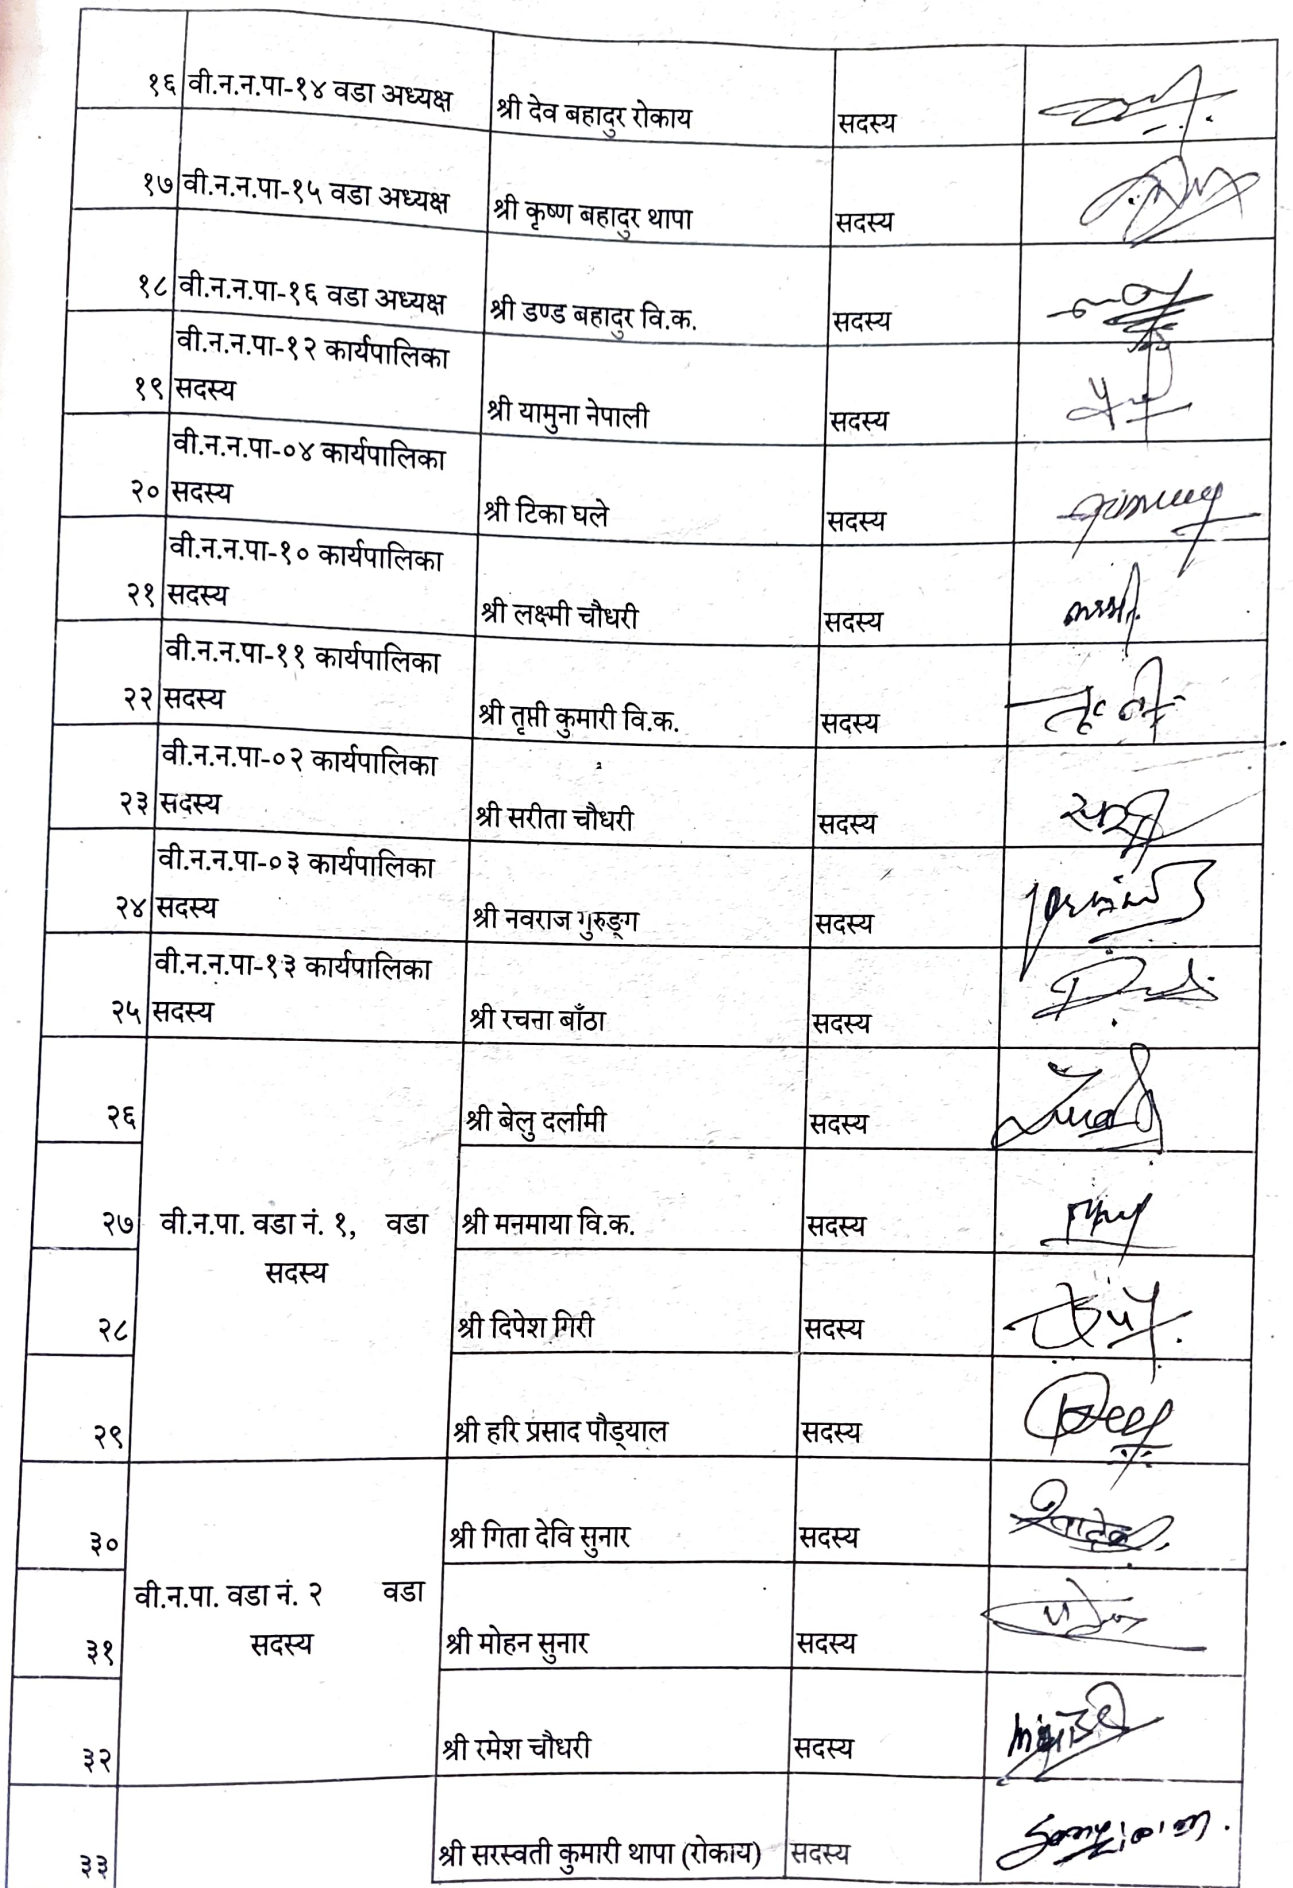 १६ वी.न.न.पा-१४ वडा अध्यक्ष श्री देव बहादुर रोकाय सदस्य
१७ वी.न.न.पा-१५ वडा अध्यक्ष श्री कृष्ण बहादुर थापा सदस्य
१८ वी.न.न.पा-१६ वडा अध्यक्ष श्री डण्ड बहादुर वि.क. सदस्य
वी.न.न.पा-१२ कार्यपालिका
१९ सदस्य श्री यामुना नेपाली सदस्य
वी.न.न.पा-०४ कार्यपालिका
२० सदस्य श्री टिका घले सदस्य
वी.न.न.पा-१० कार्यपालिका
२१ सदस्य श्री लक्ष्मी चौधरी सदस्य
वी.न.न.पा-११ कार्यपालिका
२२ सदस्य श्री तृप्ती कुमारी वि.क. सदस्य
वी.न.न.पा-०२ कार्यपालिका
२३ सदस्य श्री सरीता चौधरी सदस्य
वी.न.न.पा-०३ कार्यपालिका
२४ सदस्य श्री नवराज गुरुङ्ग सदस्य
वी.न.न.पा-१३ कार्यपालिका
२५ सदस्य श्री रचना बाँठा सदस्य
२६ श्री बेलु दर्लामी सदस्य
२७ वी.न.पा. वडा नं. १, वडा श्री मनमाया वि.क. सदस्य
सदस्य
२८ श्री दिपेश गिरी सदस्य
२९ श्री हरि प्रसाद पौड्याल सदस्य
३० श्री गिता देवि सुनार सदस्य
वी.न.पा. वडा नं. २ वडा
३१ सदस्य श्री मोहन सुनार सदस्य
३२ श्री रमेश चौधरी सदस्य
३३ श्री सरस्वती कुमारी थापा (रोकाय) सदस्य